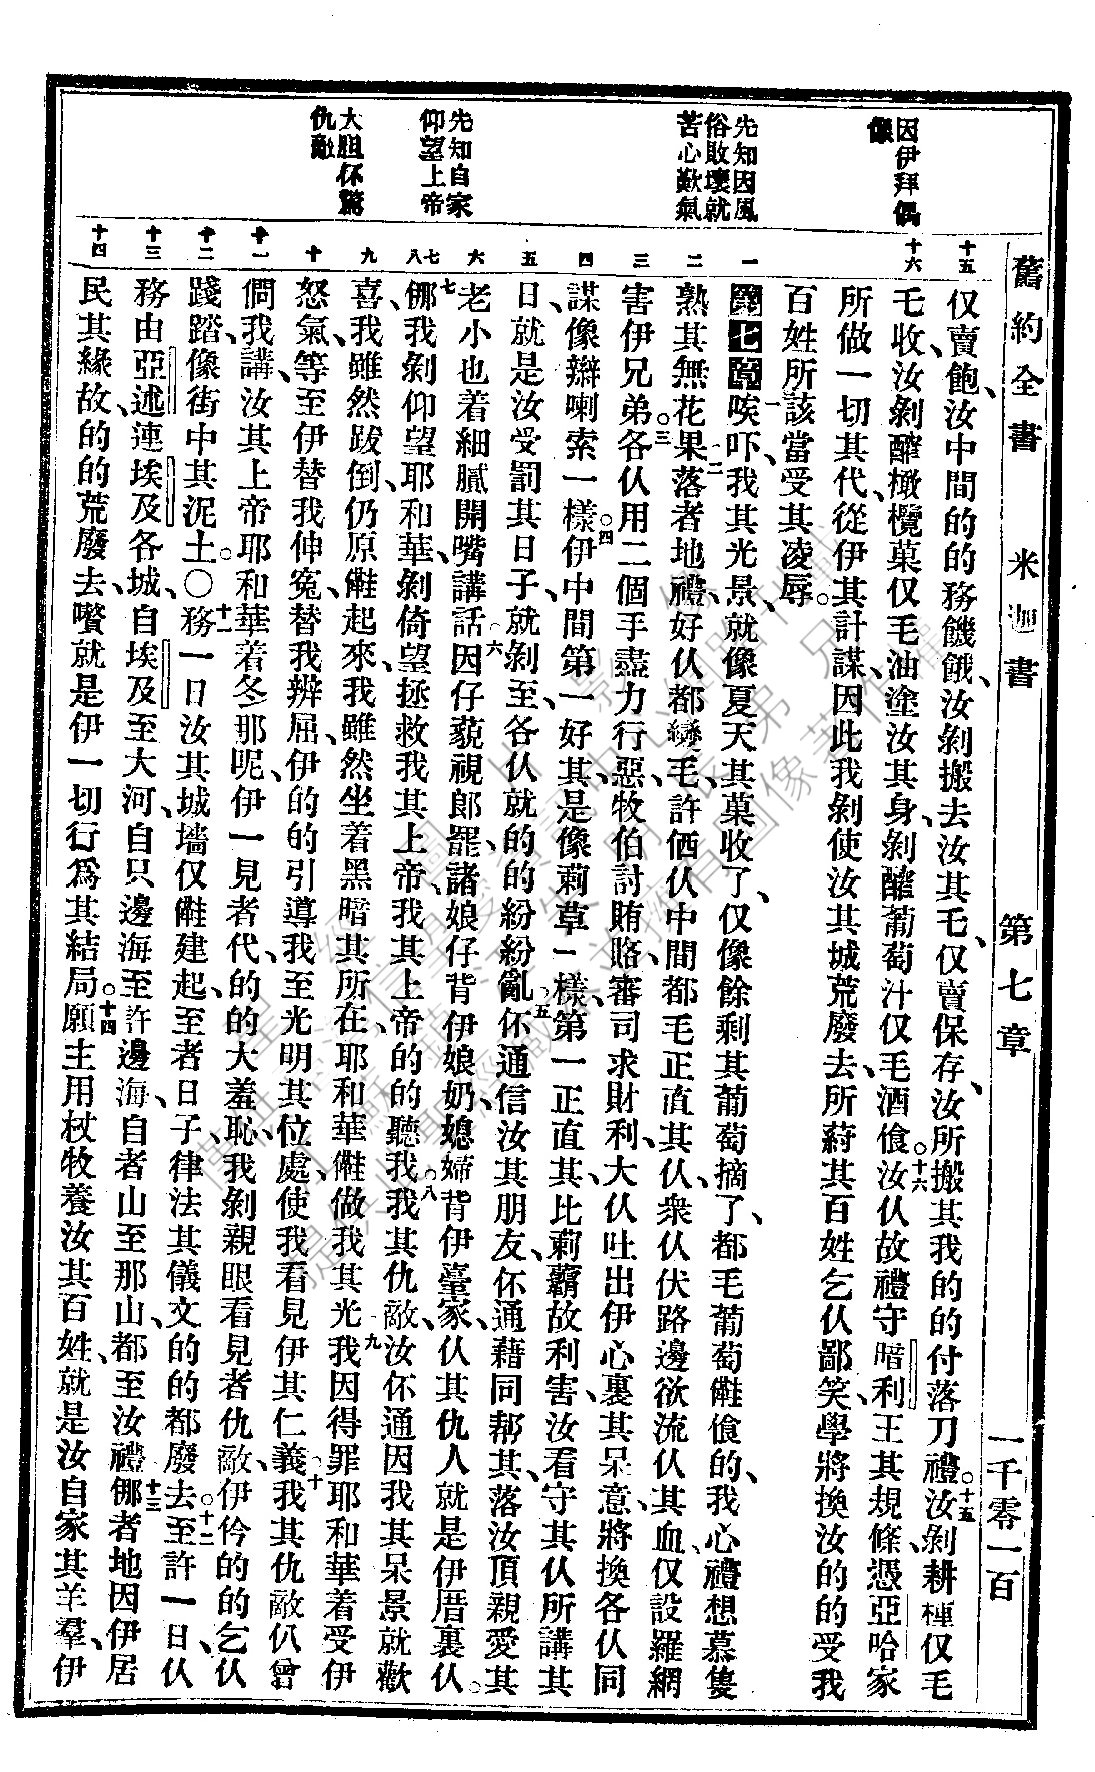 舊約全書　米迦書　第七章　一千零一百
因伊拜偶
像
先知因風
俗敗壞就
苦心歎氣
先知自家
仰望上帝
大胆伓驚
仇敵
十五
十六
一
二
三
四
五
六
七
八
九
十
十一
十二
十三
十四
仅賣飽、汝中間的的務饑餓、汝剝搬去汝其乇、仅賣保存、汝所搬其我的的付落刀禮。十五汝剝耕種仅乇
乇收、汝剝醡橄欖菓仅毛油塗汝其身、剝醡葡萄汁仅毛酒飲。十六汝仈故禮守暗利王其規條、憑亞哈家
所做一切其代、從伊其計謀、因此我剝使汝其城荒廢去、所蒞其百姓乞仈鄙笑、學將換汝的的受我
百姓所該當受其凌辱。
第七章一唉吓、我其光景、就像夏天其菓收了、仅像餘剩其葡萄摘了、都毛葡萄㑚飲的、我心禮想慕隻
熟其無花果。二落者地禮、好仈都變毛、許仈中間都毛正直其仈、衆仈伏路邊欲流仈其血、仅設羅網
害伊兄弟。三各仈用二個手盡力行惡、牧伯討賄賂、審司求財利、大仈吐出伊心裏其呆意、將換各仈同
謀像辮喇索一樣。四伊中間第一好其、是像莿草一樣、第一正直其、比莿籬故利害、汝看守其仈所講其
日、就是汝受罰其日子、就剝至、各仈就的的紛紛亂。五伓通信汝其朋友、伓通藉同幫其、落汝頂親愛其
老小也着細膩開嘴講話。六因仔藐視郎罷、諸娘仔背伊娘奶、媳婦背伊臺家、仈其仇人就是伊厝裏仈。
七㑚我剝仰望耶和華、剝倚望拯救我其上帝、我其上帝的的聽我。八我其仇敵汝伓通因我其呆景就歡
喜、我雖然跋倒、仍原㑚起來、我雖然坐着黑暗其所在、耶和華㑚做我其光。九我因得罪耶和華着受伊
怒氣、等至伊替我伸寃、替我辨屈、伊的的引導我至光明其位處、使我看見伊其仁義。十我其仇敵仈曾
倜我講、汝其上帝耶和華着冬那呢、伊一見者代的的大羞恥、我剝親眼看見者仇敵、伊伶的的乞仈
踐踏、像街中其泥土。○十一務一日汝其城墻仅㑚建起、至者日子、律法其儀文的的都廢去。十二至許一日、仈
務由亞述連埃及各城、自埃及至大河、自只邊海至許邊海、自者山至那山、都至汝禮。十三㑚者地因伊居
民其緣故、的的荒廢去、嚽就是伊一切行爲其結局。十四願主用杖牧養汝其百姓、就是汝自家其羊羣、伊